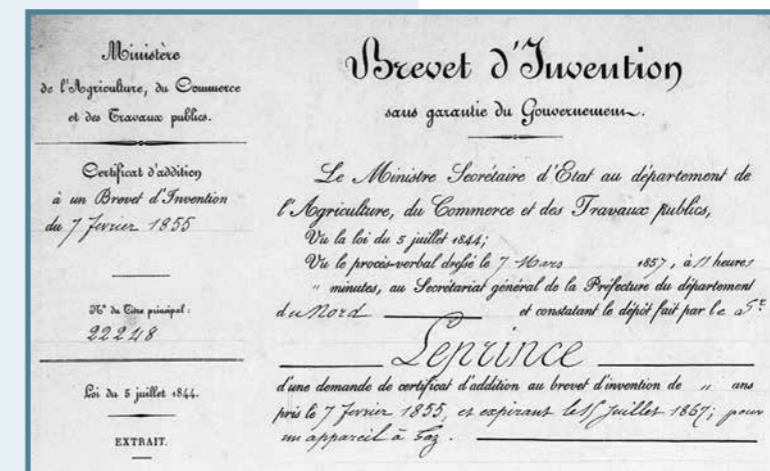 Ministère
de l'Agriculture, du Commerce
et des Travaux publics.
Certificat d'addition
à un Brevet d'Invention
du 7 fevrier 1855
N° du Titre principal :
22248
Loi du 5 juillet 1844.
EXTRAIT.
Brevet d'Invention
sans garantie du Gouvernement.
Le Ministre Secrétaire d'Etat au département de
l'Agriculture, du Commerce et des Travaux publics,
Vu la loi du 5 juillet 1844;
Vu le procès-verbal dressé le 7 Mars 1857, à 11 heures
" minutes, au Secrétariat général de la Préfecture du département
du Nord et constatant le dépôt fait par le Sr.
Leprince
d'une demande de certificat d'addition au brevet d'invention de " ans
pris le 7 fevrier 1855, et expirant le 15 juillet 1867; pour
un appareil à Gaz.